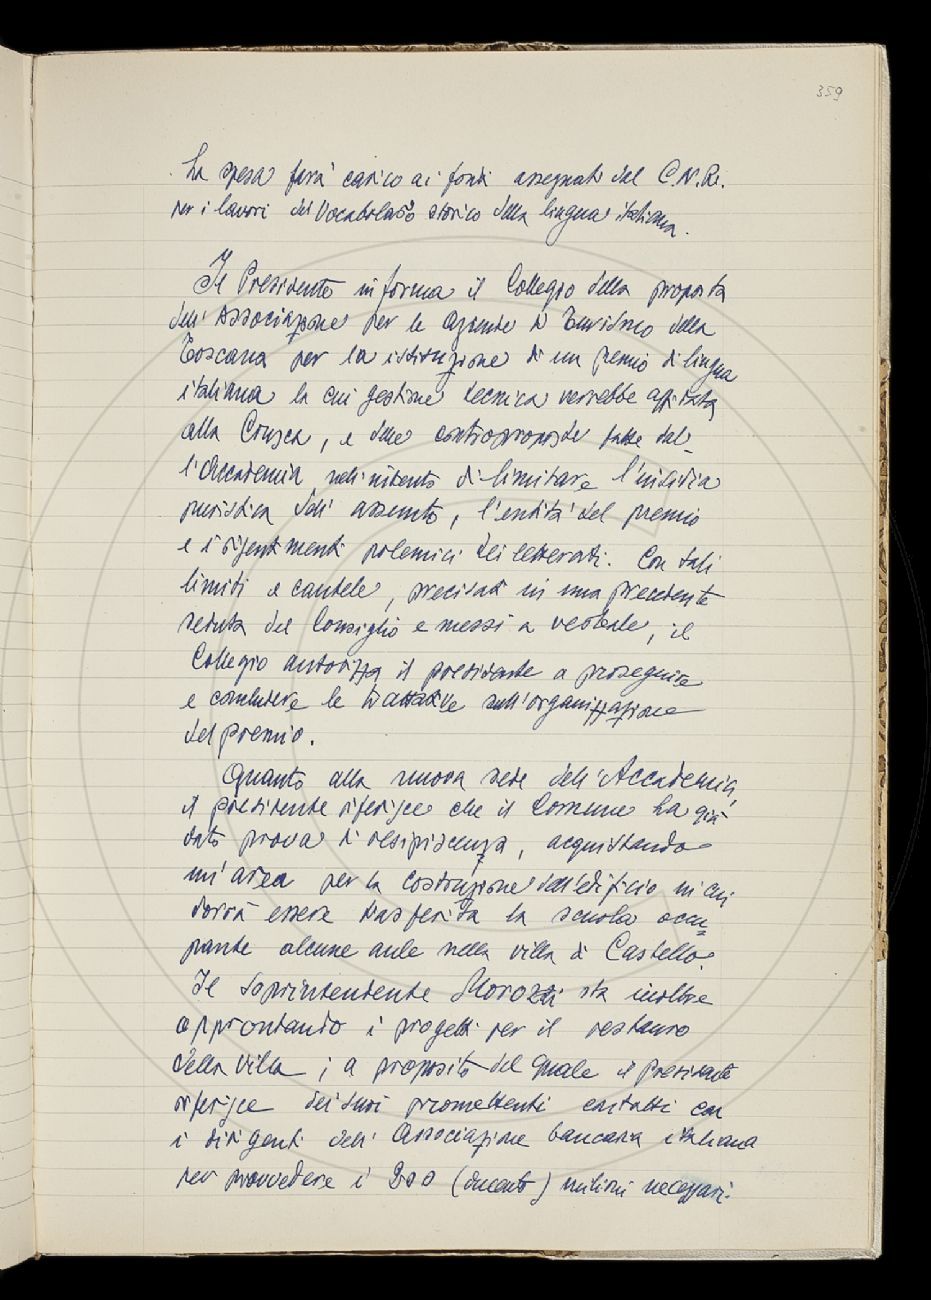 359
La spesa farà carico ai fondi assegnati dal C.N.R.
per i lavori del Vocabolario storico della lingua italiana.
Il Presidente informa il Collegio della proposta
dell'Associazione per le Aziende di Turismo della
Toscana per la istituzione di un premio di lingua
italiana la cui gestione tecnica verrebbe affidata
alla Crusca, e delle controproposte fatte dal-
l'Accademia nell'intento di limitare l'insidia
puristica dell'assunto, l'entità del premio
e i risentimenti polemici dei letterati. Con tali
limiti e cautele, precisati in una precedente
seduta del Consiglio e messi a verbale, il
Collegio autorizza il presidente a proseguire
e concludere le trattative sull'organizzazione
del premio.
Quanto alla nuova sede dell'Accademia,
il presidente riferisce che il Comune ha già
dato prova di resipiscenza, acquistando
un'area per la costruzione dell'edificio in cui
dovrà essere trasferita la scuola occu=
pante alcune aule nella villa di Castello.
Il Soprintendente Morozzi sta inoltre
approntando i progetti per il restauro
della Villa; a proposito del quale il Presidente
riferisce dei suoi promettenti contatti con
i dirigenti dell'Associazione bancaria italiana
per provvedere i 200 (duecento) milioni necessari.